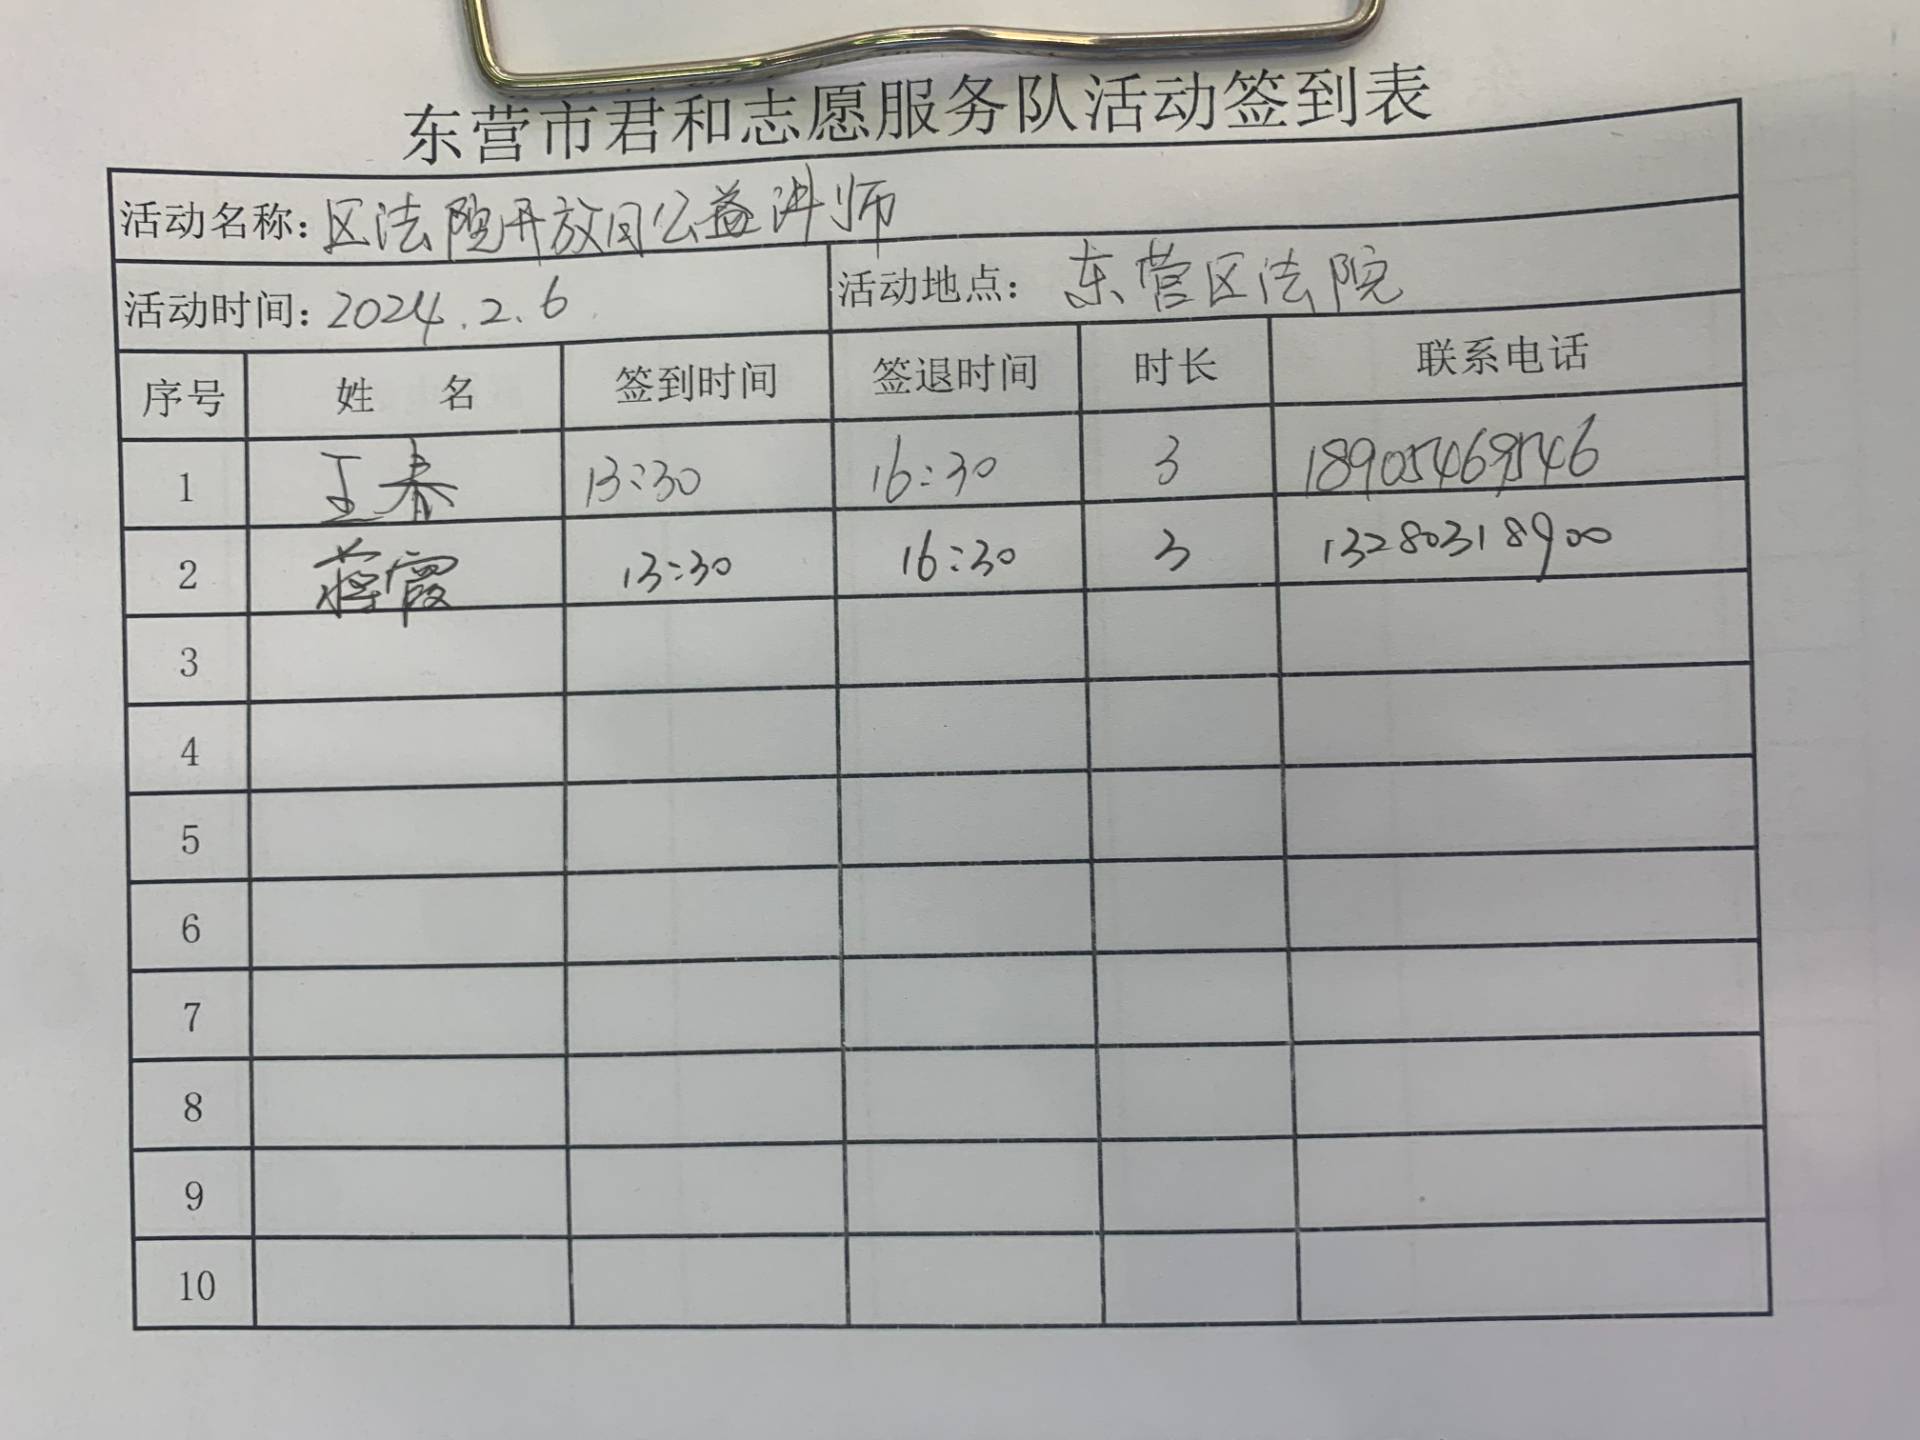 东营市君和志愿服务队活动签到表
活动名称：区法院开放日公益讲师
活动时间：2024.2.6 活动地点：东营区法院
序号 姓 名 签到时间 签退时间 时长 联系电话
1 王春 13:30 16:30 3 18905469546
2 蒋霞 13:30 16:30 3 13280318900
3
4
5
6
7
8
9
10